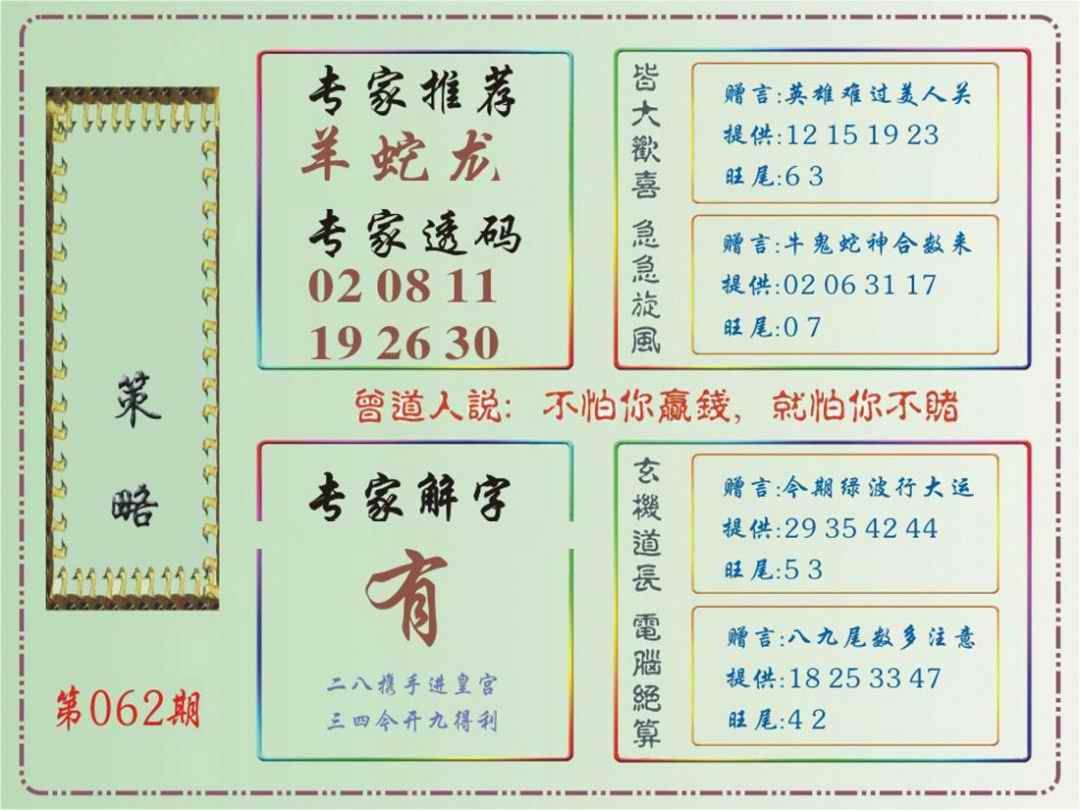 策略
第062期
专家推荐
羊蛇龙
专家透码
02 08 11
19 26 30
皆大歡喜
赠言:英雄难过美人关
提供:12 15 19 23
旺尾:6 3
急急旋風
赠言:牛鬼蛇神合数来
提供:02 06 31 17
旺尾:0 7
曾道人説: 不怕你贏錢, 就怕你不賭
专家解字
有
二八携手进皇宫
三四今开九得利
玄機道長
赠言:今期绿波行大运
提供:29 35 42 44
旺尾:5 3
電腦絕算
赠言:八九尾数多注意
提供:18 25 33 47
旺尾:4 2